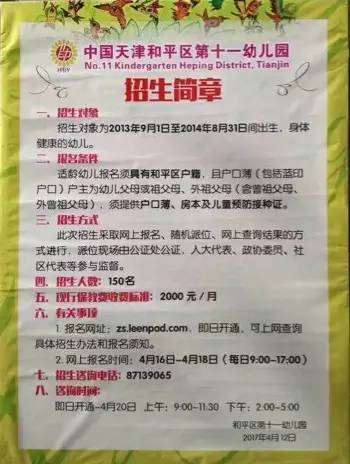 中国天津和平区第十一幼儿园
No.11 Kindergarten Heping District, Tianjin
招生简章
一、招生对象
招生对象为2013年9月1日至2014年8月31日间出生，身体
健康的幼儿。
二、报名条件
适龄幼儿报名须具有和平区户籍，且户口簿（包括蓝印
户口）户主为幼儿父母或祖父母、外祖父母（含曾祖父母、
外曾祖父母），须提供户口簿、房本及儿童预防接种证。
三、招生方式
此次招生采取网上报名、随机派位、网上查询结果的方
式进行，派位现场由公证处公证，人大代表、政协委员、社
区代表等参与监督。
四、招生人数：150名
五、现行保教费收费标准：2000 元／月
六、有关事项
1. 报名网址：zs.leenpad.com，即日开通，可上网查询
具体招生办法和报名须知。
2. 网上报名时间：4月16日-4月18日（每日9:00-17:00）
七、招生咨询电话：87139065
八、咨询时间：
即日开通-4月20日 上午：9:00-11:30 下午：2:00-5:00
和平区第十一幼儿园
2017年4月12日